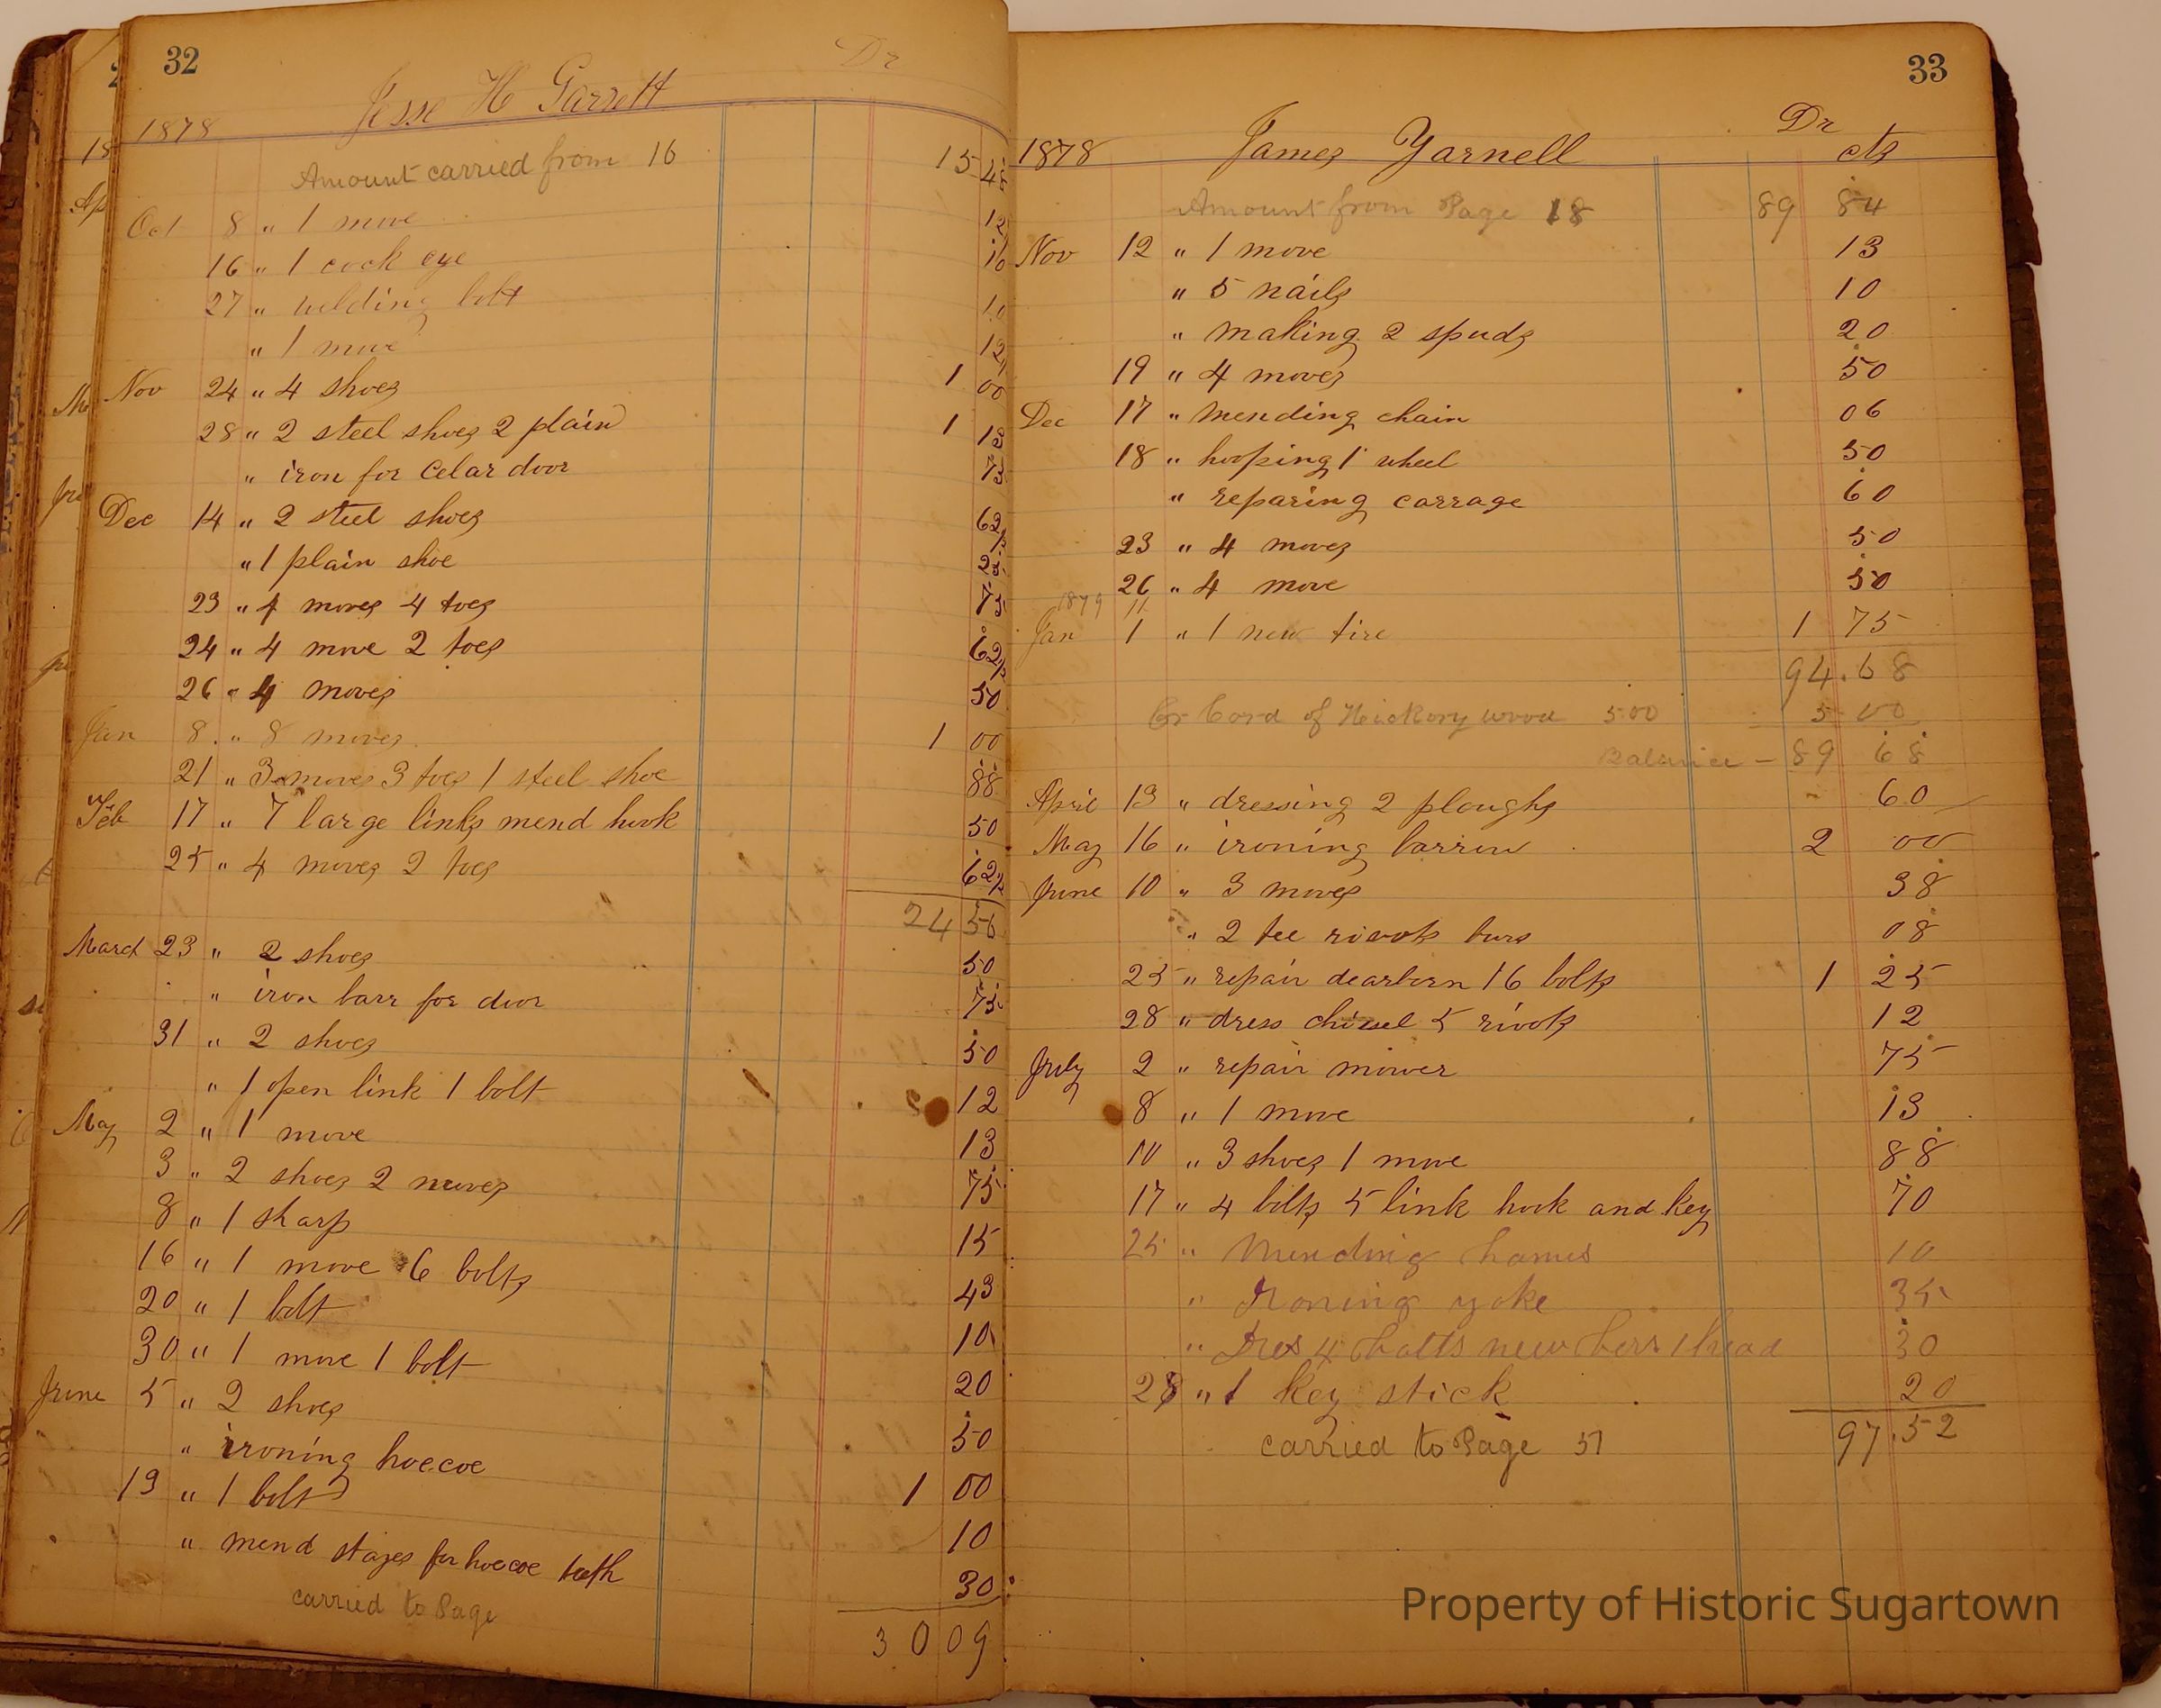 32
Jesse H Garrett Dr
1878
Amount carried from 16 15 45
Oct 8 " 1 move 12
16 " 1 cock eye 10
27 " welding bolt 10
" 1 move 12
Nov 24 " 4 shoes 1 00
28 " 2 steel shoes 2 plain 1 12
" iron for Celar door 75
Dec 14 " 2 steel shoes 62½
" 1 plain shoe 25
23 " 4 moves 4 toes 75
24 " 4 move 2 toes 62½
26 " 4 moves 50
Jan 8 " 8 moves 1 00
21 " 3 moves 3 toes 1 steel shoe 88
Feb 17 " 7 large links mend hook 50
25 " 4 moves 2 toes 62½
24 56
March 23 " 2 shoes 50
" iron barr for door 75
31 " 2 shoes 50
" 1 open link 1 bolt 12
May 2 " 1 move 13
3 " 2 shoes 2 moves 75
8 " 1 sharp 15
16 " 1 move 6 bolts 43
20 " 1 bolt 10
30 " 1 move 1 bolt 20
June 5 " 2 shoes 50
" ironing hoecoe 1 00
19 " 1 bolt 10
" mend stazes for hoecoe teeth 30
carried to Page
30 09
33
1878 James Yarnell Dr cts
Amount from Page 18 89 84
Nov 12 " 1 move 13
" 5 nails 10
" making 2 spuds 20
19 " 4 moves 50
Dec 17 " mending chain 06
18 " hooping 1 wheel 50
" reparing carrage 60
23 " 4 moves 50
26 " 4 move 50
1879
Jan 1 " 1 new tire 1 75
94.68
Cr Cord of Hickory wood 500 5 00
Balance - 89 68
April 13 " dressing 2 ploughs 60
May 16 " ironing barrow 2 00
June 10 " 3 moves 38
" 2 tee rivots burs 08
25 " repair dearborn 16 bolts 1 25
28 " dress chisel 5 rivots 12
July 2 " repair mower 75
8 " 1 move 13
10 " 3 shoes 1 move 88
17 " 4 bolts 5 link hook and key 70
25 " Mending hames 10
" Ironing yoke 35
" Dres 4 bolts new 1 head 30
28 " 1 key stick 20
carried to Page 51 97.52
Property of Historic Sugartown